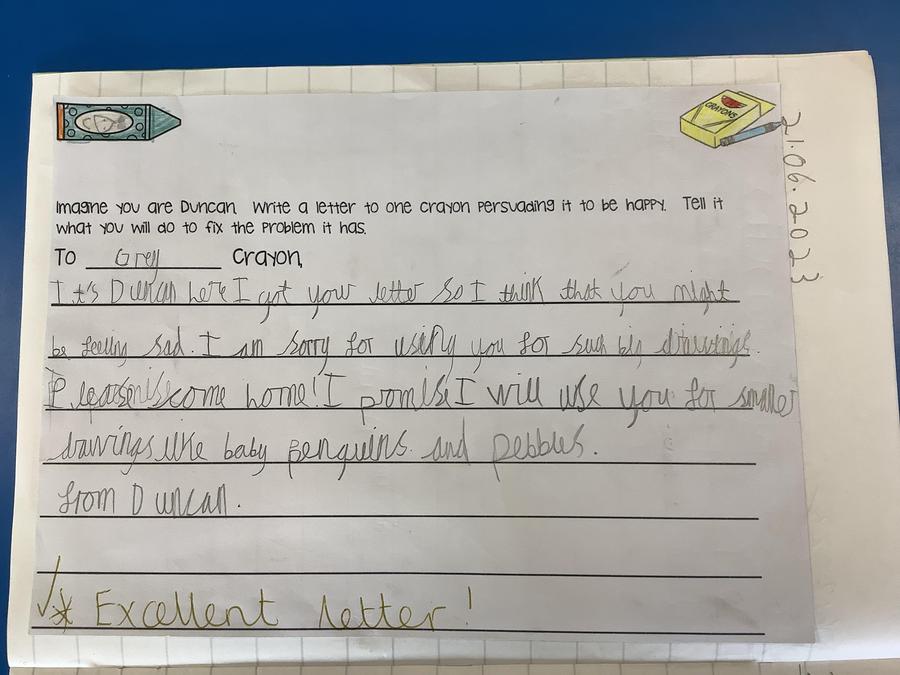 CRAYONS
21.06.2023
Imagine you are Duncan. Write a letter to one crayon persuading it to be happy. Tell it
what you will do to fix the problem it has.
To Grey Crayon,
It's Duncan here I got your letter so I think that you might
be feeling sad. I am sorry for using you for such big drawings.
come home! I promise I will use you for smaller
drawings like baby penguins. and pebbles.
from Duncan.
Excellent letter!